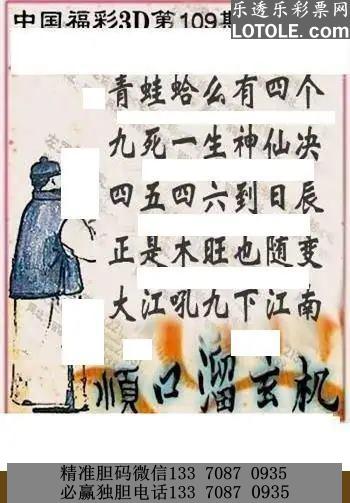 中国福彩3D第109期
乐透乐彩票网
LOTOLE.COM
青蛙蛤么有四个
九死一生神仙决
四五四六到日辰
正是木旺也随变
大江吼九下江南
顺口溜玄机
精准胆码微信133 7087 0935
必赢独胆电话133 7087 0935